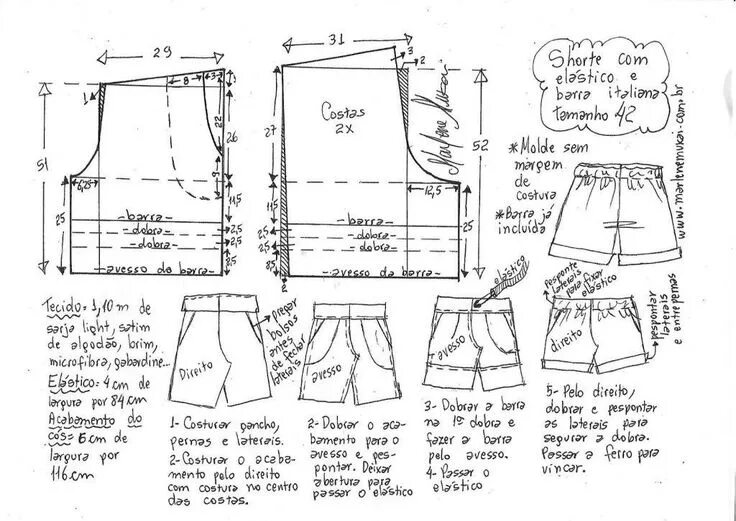 Shorte com
elástico e
barra italiana
tamanho 42
*Molde sem
margem
de
costura
*Barra já
incluída
www.marlenemukai.com.br
Marlene Mukai
29
8
3
1
22
26
51
9
6,25
11,5
25
-barra-
-dobra-
-dobra-
2,5
2,5
avesso da barra
31
3
2
Costas
2X
27
52
12,5
11,5
25
-barra-
-dobra-
-dobra-
2,5
2,5
8,5
avesso da barra-
2
Tecido= 1,10 m de
sarja light, satim
de algodão, brim,
microfibra, gabardine...
Elástico= 4 cm de
largura por 84 cm
Acabamento do
cós= 6 cm de
largura por
116 cm
Direito
pregar
bolsos
antes
de fechar
laterais
1- Costurar gancho,
pernas e laterais.
2- Costurar o acaba-
mento pelo direito
com costura no centro
das costas.
avesso
2- Dobrar o aca-
bamento para o
avesso e pes-
pontar. Deixar
abertura para
passar o elástico
elástico
avesso
3- Dobrar a barra
na 1ª dobra e
fazer a barra
pelo avesso.
4- Passar o
elástico
pesponte
laterais
para fixar
elástico
direito
pespontar
laterais
e entrepernas
5- Pelo direito,
dobrar e pespontar
as laterais para
segurar a dobra.
Passar a ferro para
vincar.